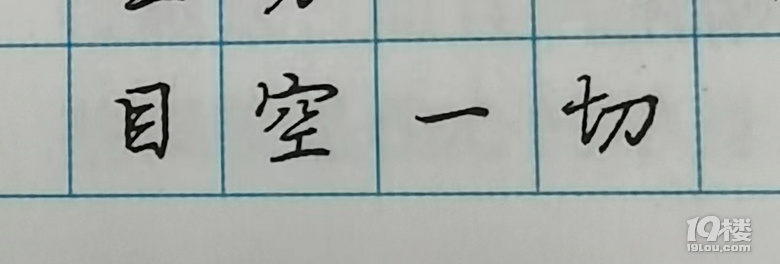 目空一切
19楼
19lou.com